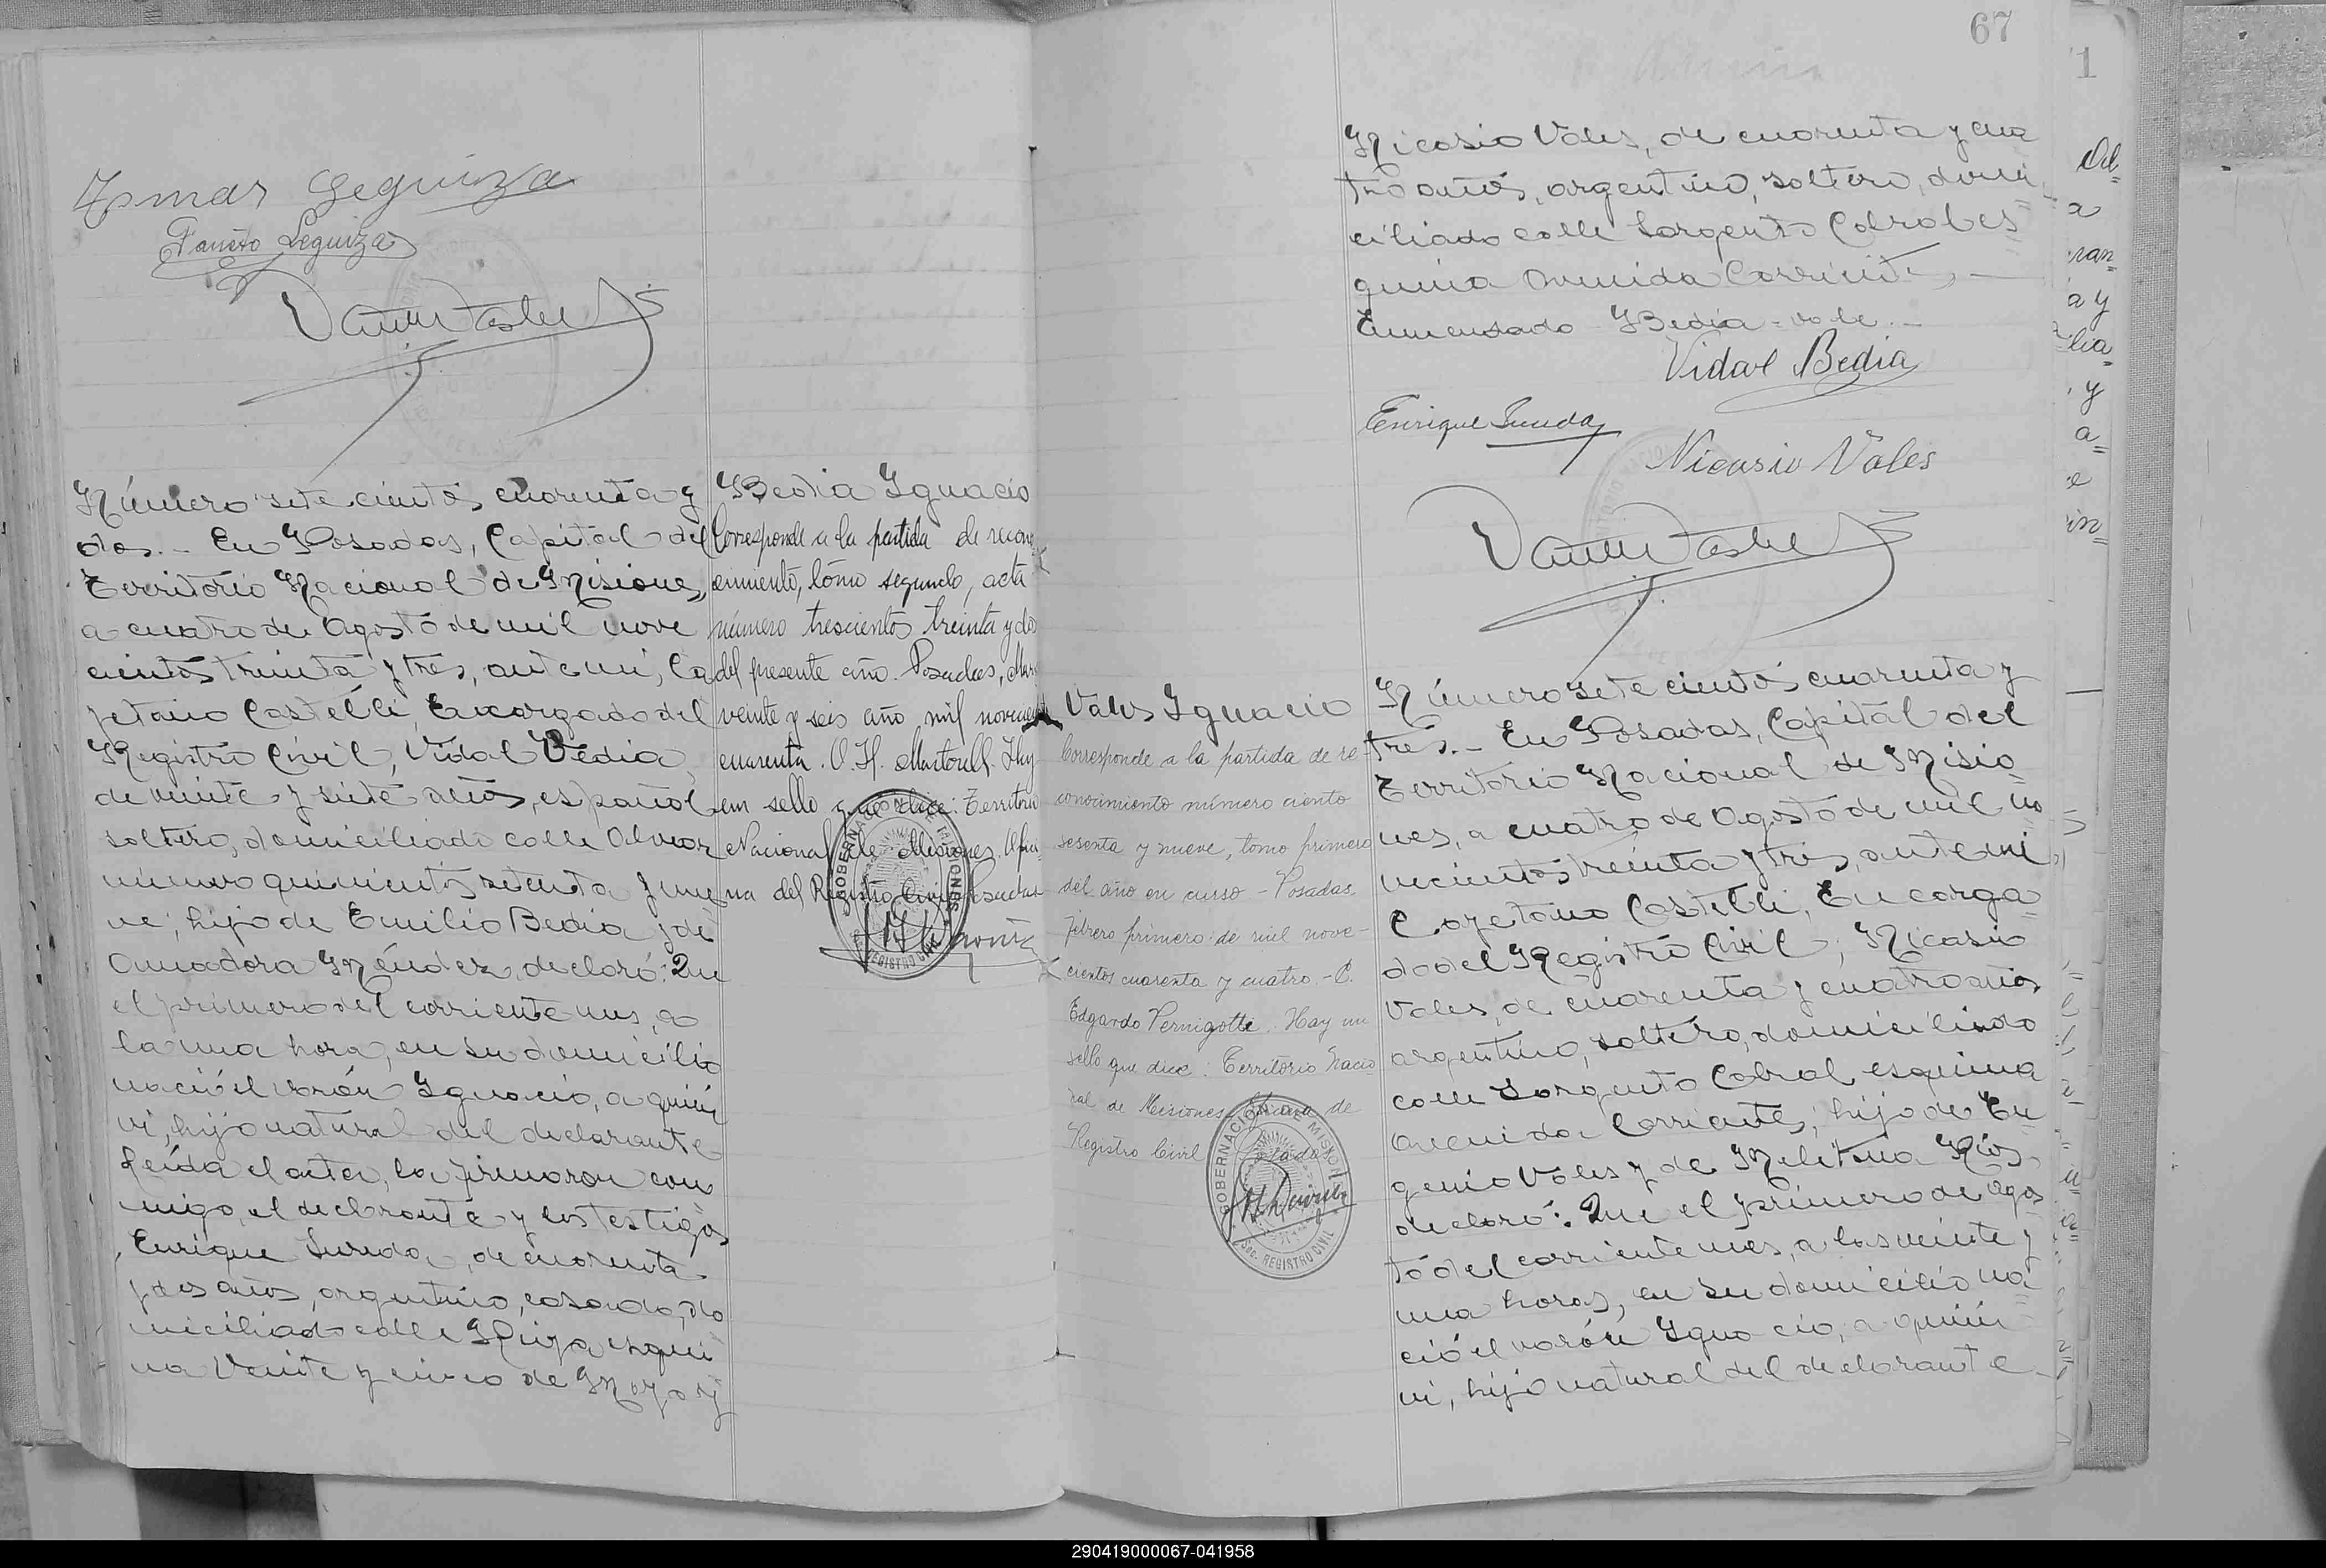 Tomas Leguiza
Fausto Leguiza
Número sete cientos cuarenta y
dos.- En Posadas, Capital del
Territorio Nacional de Misiones,
a cuatro de Agosto de mil nove
cientos treinta y tres, ante mi, Ca
yetano Castelli, Encargado del
Registro Civil, Vidal Bedia,
de veinte y siete años, español
soltero, domiciliado calle Alvear
número quinientos setenta y nue
ve; hijo de Emilio Bedia y de
Amadora Méndez, declaró: Que
el primero del corriente mes, a
la una hora, en su domicilio
nació el varón Ignacio, a quien
vi, hijo natural del declarante
Leída el acta, la firmaron con
migo, el declarante y los testigos
Enrique Sureda, de cuarenta
y dos años, argentino, casado, do
miciliado calle Rioja esqui
na Veinte y cinco de Mayo y
Bedia Ignacio
Corresponde a la partida de recono
cimiento, tomo segundo, acta
número trescientos treinta y dos
del presente año. Posadas,
veinte y seis año mil novecien
cuarenta. O. H. Martorell. Hay
un sello que dice: Territorio
Nacional de Misiones. Ofici
na del Registro Civil Posadas
GOBERNACION DE MISIONES
REGISTRO CIVIL
67
Nicasio Vales, de cuarenta y cua
tro años, argentino, soltero, domi
ciliado calle Sargento Cabral es
quina Avenida Corrientes, —
Enmendado Bedia = vale.—
Vidal Bedia
Enrique Sureda
Nicasio Vales
Vales Ignacio
Corresponde a la partida de re-
conocimiento número ciento
sesenta y nueve, tomo primero
del año en curso - Posadas,
febrero primero de mil nove-
cientos cuarenta y cuatro.- C.
Edgardo Pernigotti. Hay un
sello que dice: Territorio Nacio
nal de Misiones. Oficina de
Registro Civil Posadas
GOBERNACION DE MISIONES
Sec. REGISTRO CIVIL
Número sete cientos cuarenta y
tres.- En Posadas, Capital del
Territorio Nacional de Misio
nes, a cuatro de Agosto de mil no
vecientos treinta y tres, ante mi,
Cayetano Castelli, Encarga
do del Registro Civil, Nicasio
Vales, de cuarenta y cuatro años
argentino, soltero, domiciliado
calle Sargento Cabral esquina
Avenida Corrientes; hijo de Eu
genio Vales y de Melitona Ríos,
declaró: Que el primero de Agos
to del corriente mes, a las veinte y
una horas, en su domicilio na
ció el varón Ignacio, a quien
vi, hijo natural del declarante
290419000067-041958